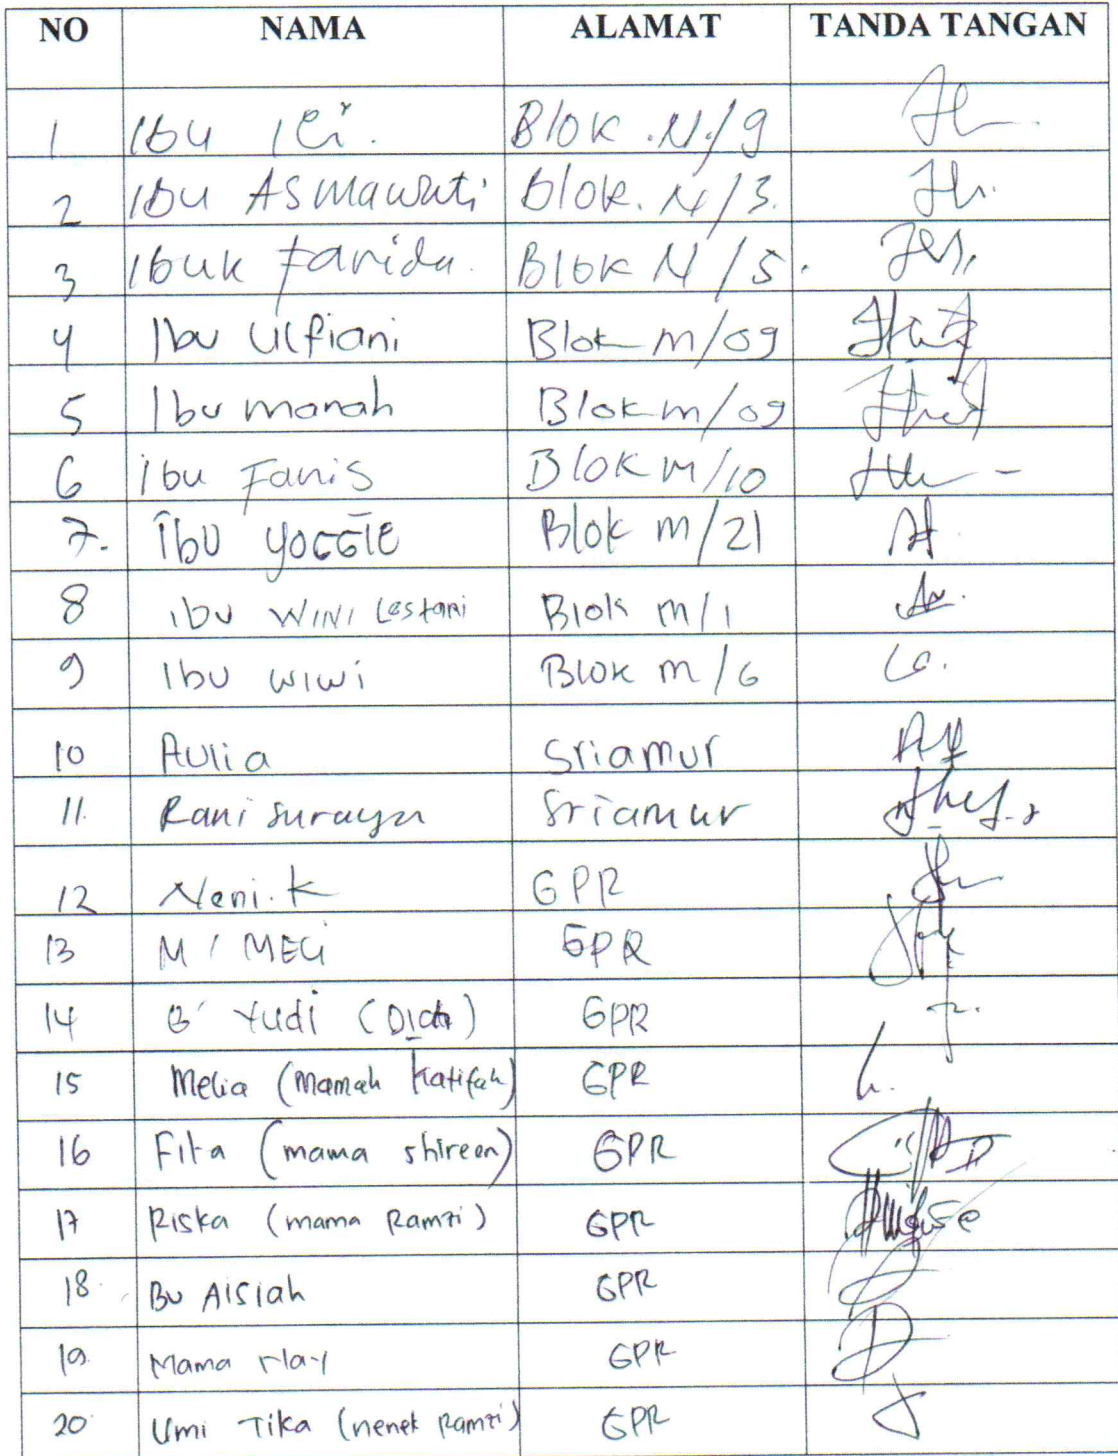 NO NAMA ALAMAT TANDA TANGAN
1 Ibu Ici. Blok .N./9
2 Ibu Asmawati Blok. N/3.
3 Ibuk Farida. Blok N/5.
4 Ibu Ulfiani Blok m/09
5 Ibu manah Blok m/09
6 Ibu Fanis Blok M/10
7. Ibu Blok m/21
8 ibu WINI Lestari Blok m/1
9 Ibu wiwi Blok m/6
10 Aulia Sriamur
11. Rani suraya Sriamur
12 Neni. K GPR
13 M / MECI GPR
14 B' Yudi GPR
15 Melia (Mamah Katifah) GPR
16 Fita (mama shireen) GPR
17 Riska (mama Ramzi) GPR
18. Bu AISIAH GPR
19. Mama GPR
20 Umi Tika (nenek Ramzi) GPR